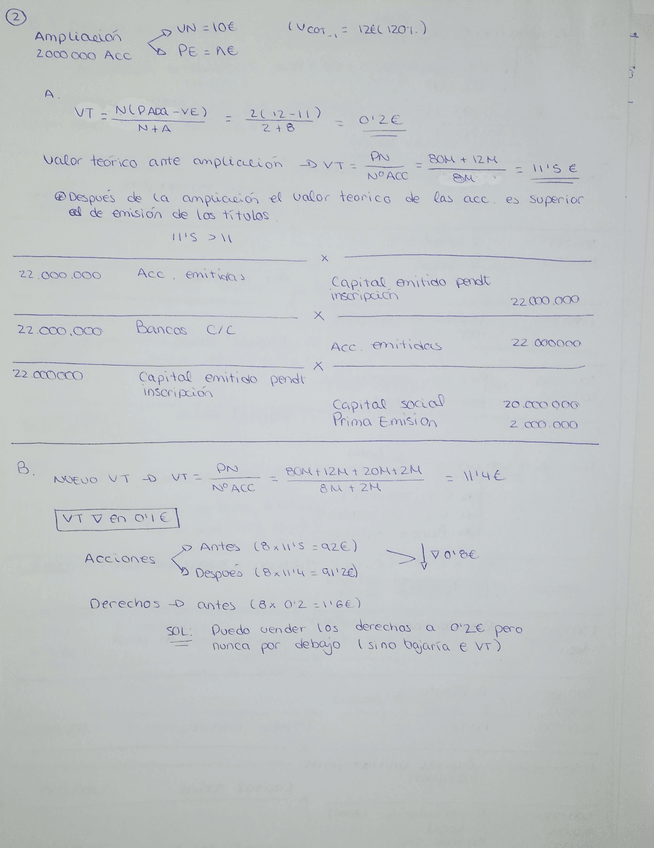 2
Ampliación VN = 10€ (VCOT-1 = 12€ (120%)
2000000 Acc PE = 1€
A.
VT = N(PADQ - VE) / N+A = 2(12-11) / 2+8 = 0'2€
Valor teórico ante ampliación → VT = PN / Nº ACC = 80M + 12M / 8M = 11'5 €
Después de la ampliación el valor teorico de las acc. es superior
al de emisión de los títulos
11'5 > 11
22.000.000 Acc. emitidas
Capital emitido pendt
inscripción 22.000.000
22.000.000 Bancos C/C
Acc. emitidas 22 000000
22 000000 Capital emitido pendt
inscripción
Capital social 20.000.000
Prima Emision 2 000.000
B.
NUEVO VT → VT = PN / Nº ACC = 80M+12M+20M+2M / 8M + 2M = 11'4€
VT ∇ en 0'1€
Antes (8 x 11'5 = 92€)
Acciones ↓ ∇ 0'8€
Después (8 x 11'4 = 91'2€)
Derechos → antes (8 x 0'2 = 1'6€)
SOL: Puedo vender los derechos a 0'2€ pero
nunca por debajo (sino bajaría e VT)